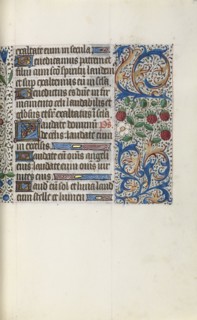 exaltate eum in secula.
Benedicamus patrem et
filium cum sancto spiritu laudem
et superexaltemus eum in secula.
Benedictus es domine in fir
mamento celi et laudabilis et
gloriosus
Laudate dominum
de celis laudate eum
in excelsis.
Laudate eum omnes angeli
eius laudate eum omnes vir
tutes eius
Laudate eum sol et luna laud
eum stelle et lumen